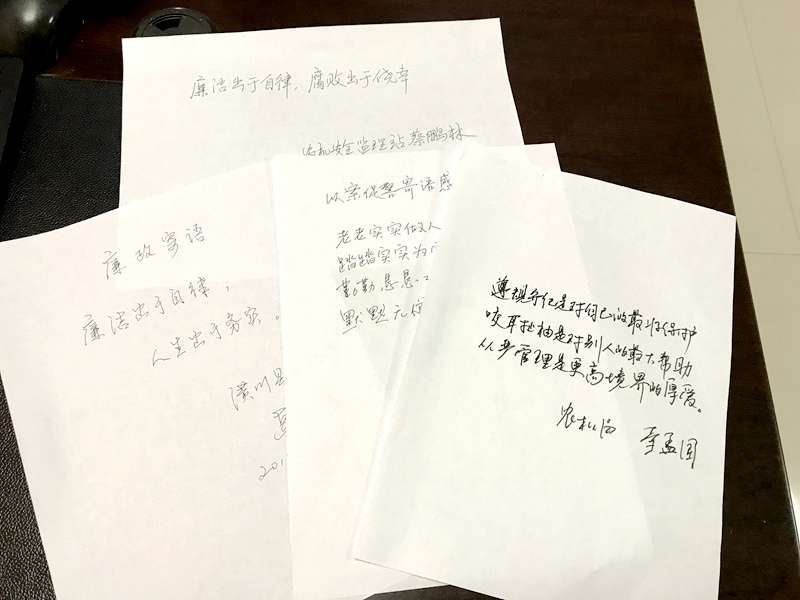 廉洁出于自律，腐败出于侥幸
农机安全监理站 蔡鹏林
廉政寄语
廉洁出于自律，
人生出于务实。
潢川县
201
以案促警寄语感
老老实实做人
踏踏实实为
勤勤恳恳工
默默无
遵规守纪是对自己的最好保护
咬耳扯袖是对别人的最大帮助
从严管理是更高境界的厚爱。
农机局 李孟国